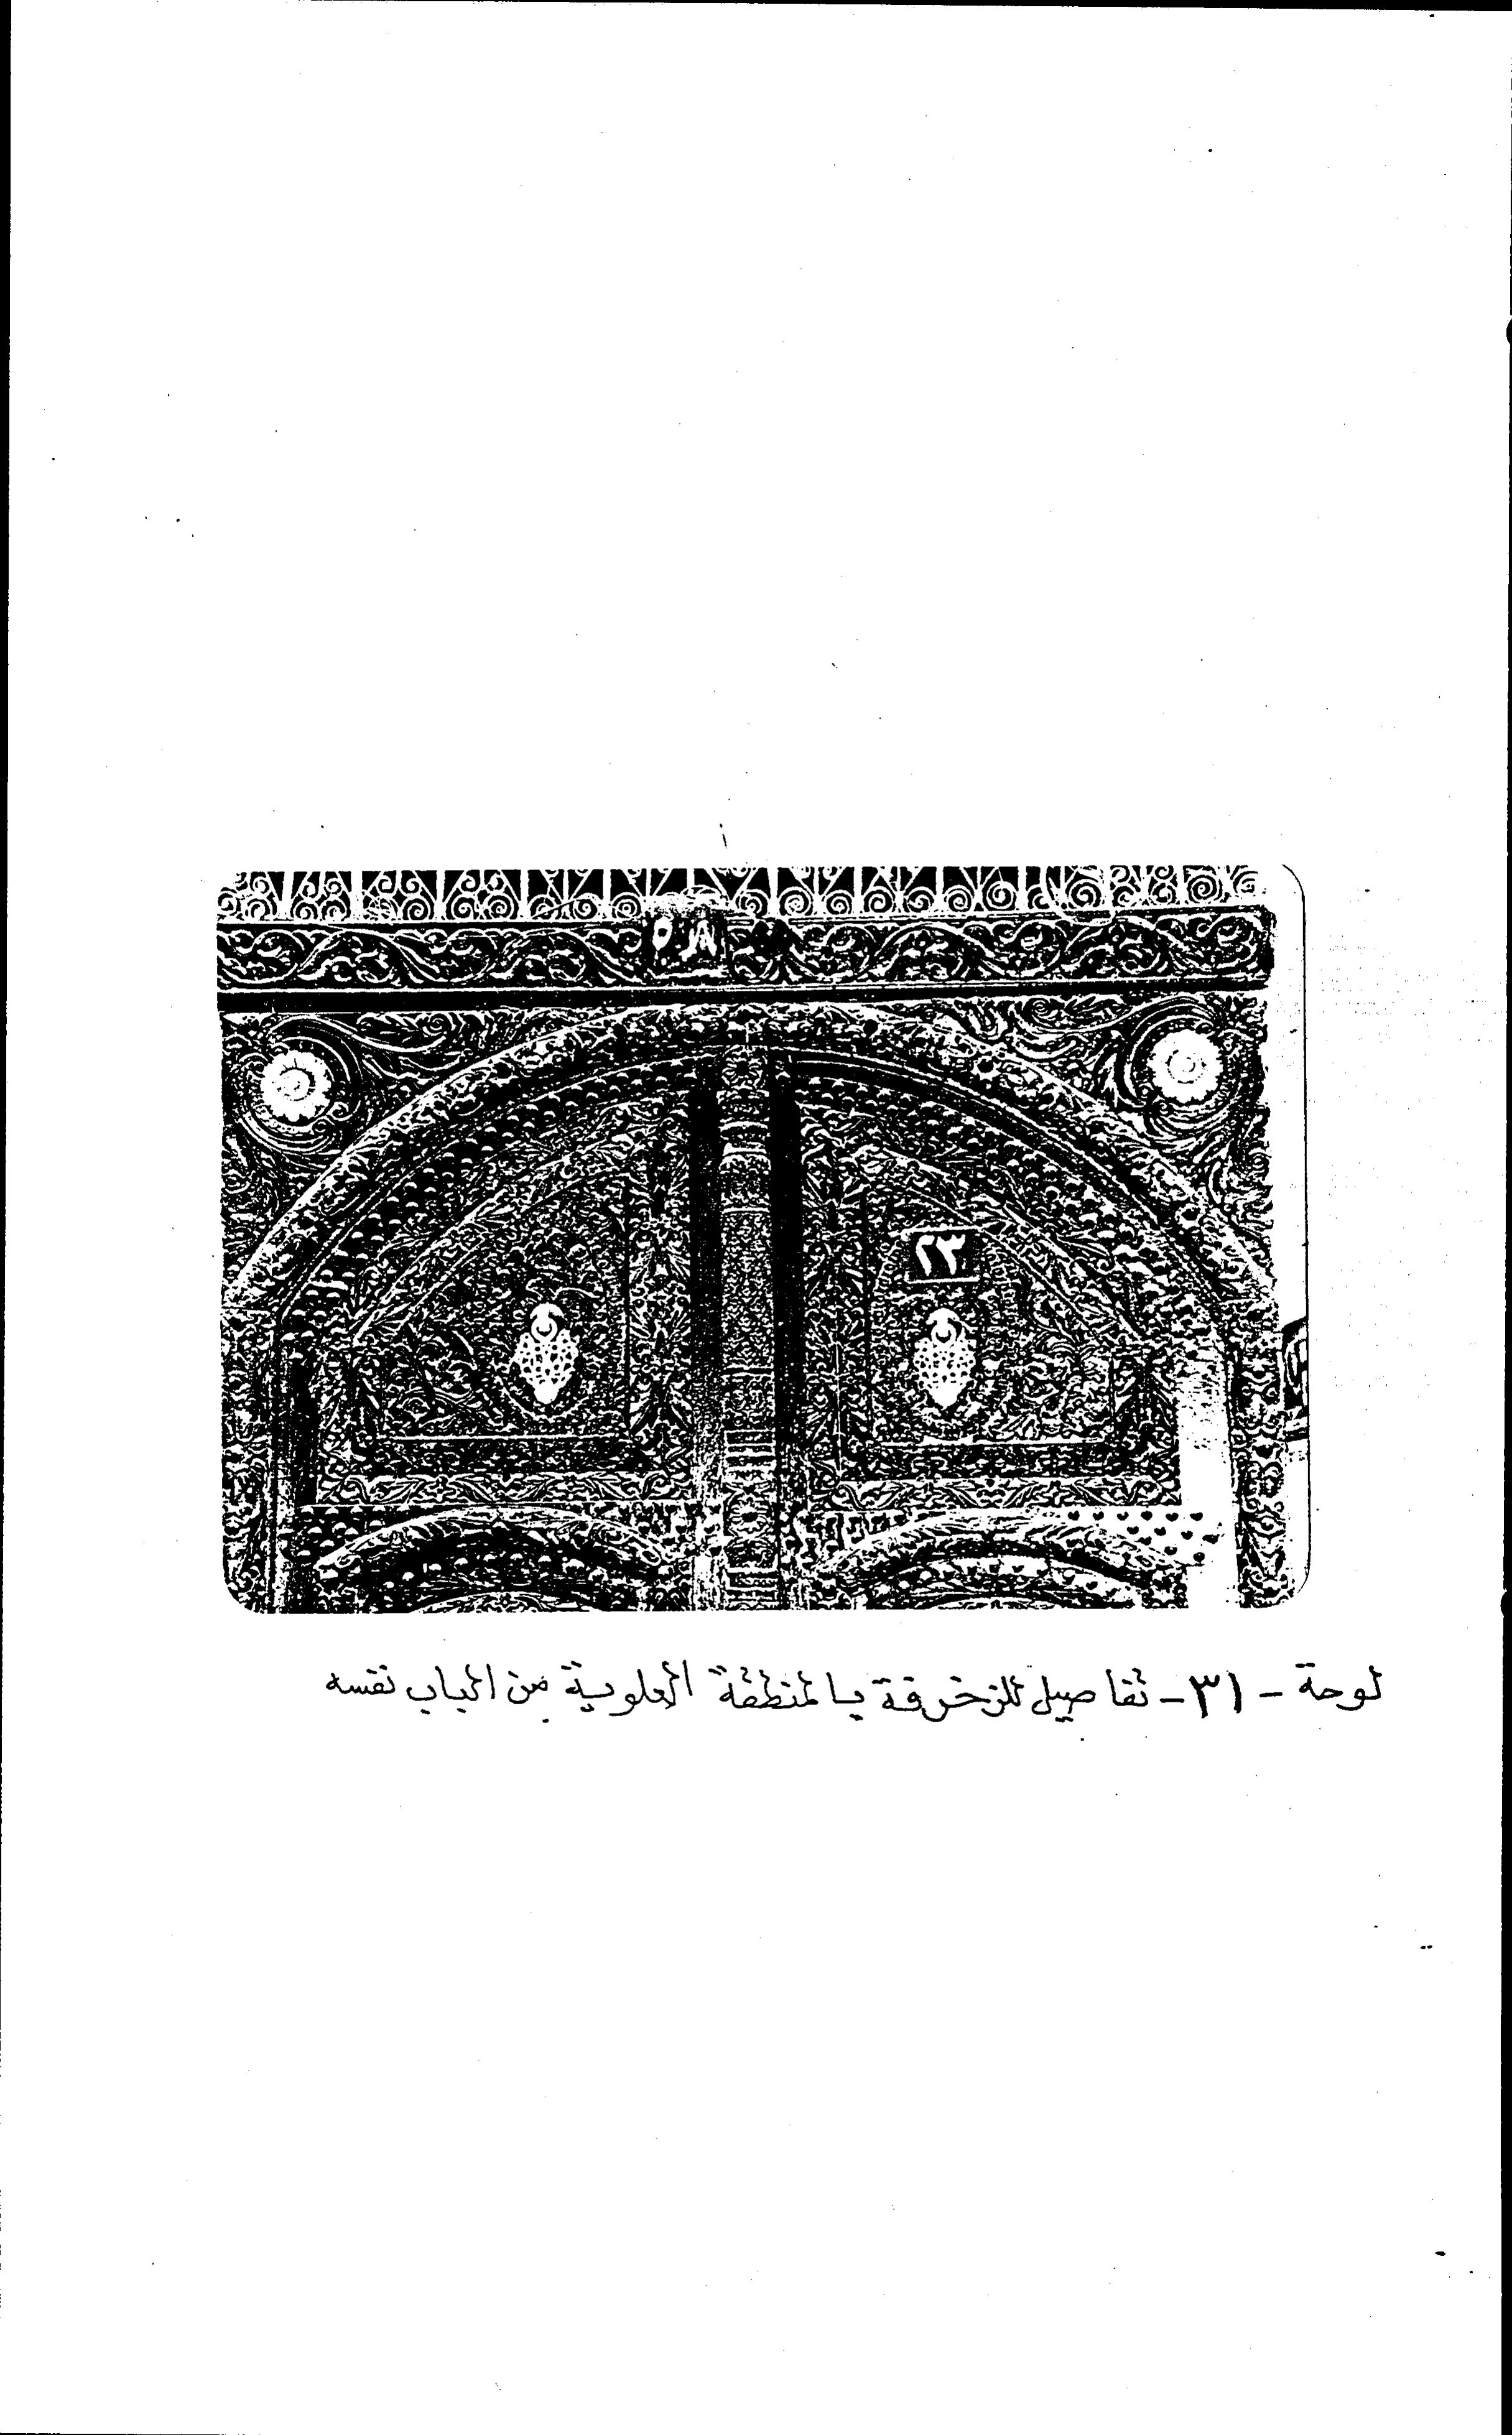 ٥٨
٢٣
لوحة - ٣١ - تفاصيل للزخرفة بالمنطقة العلوية من الباب نفسه